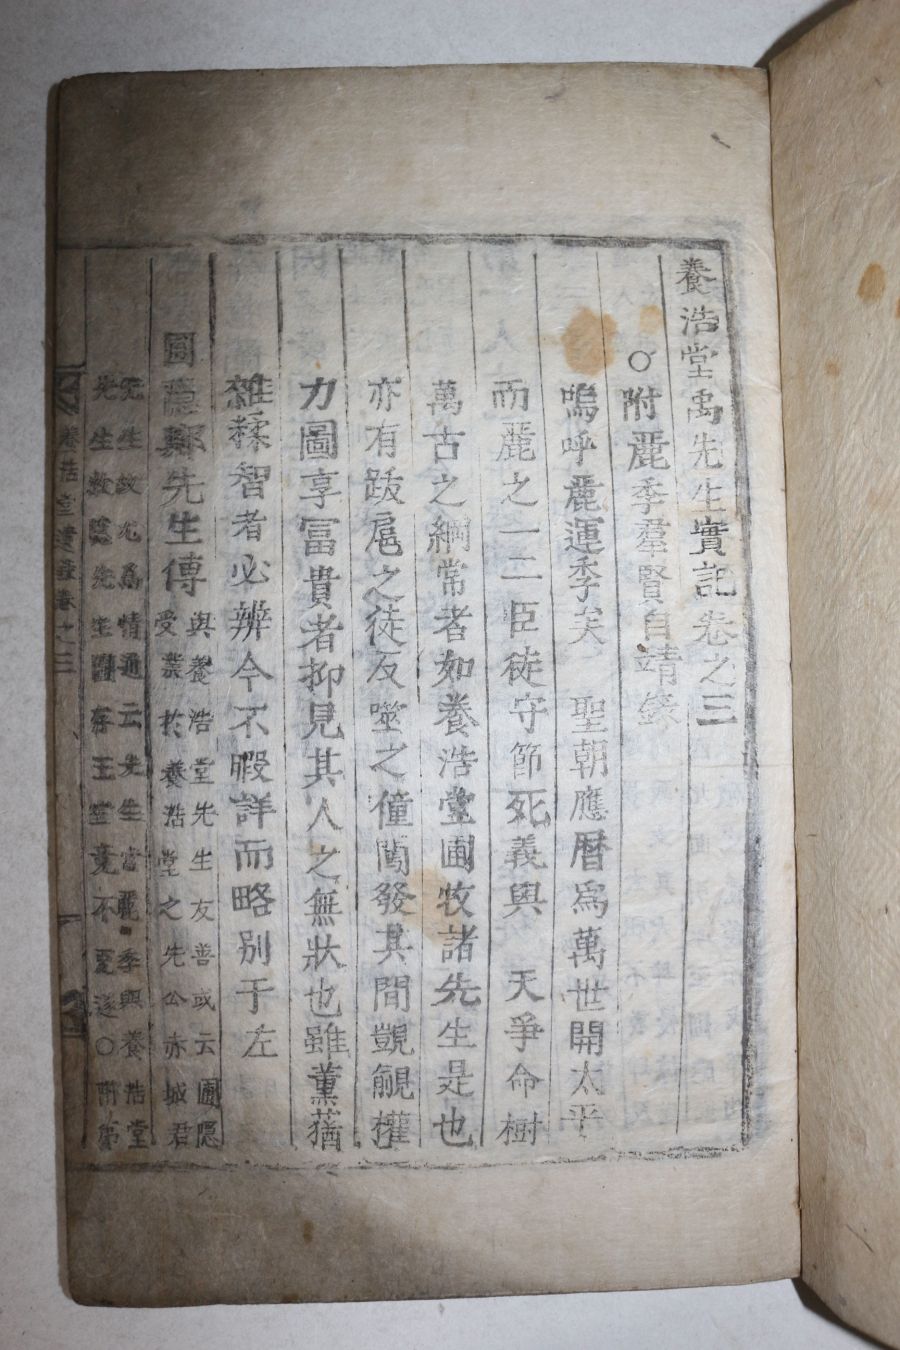 養浩堂禹先生實記卷之三
○附麗季羣賢自靖錄
嗚呼麗運季矣 聖朝應曆爲萬世開太平
而麗之一二臣徒守節死義與 天爭命樹
萬古之綱常者如養浩堂圃牧諸先生是也
亦有跋扈之徒反噬之僮闖發其間覬覦權
力圖享富貴者抑見其人之無狀也雖薰蕕
雜糅智者必辨今不暇詳而略別于左
圃隱鄭先生傳
與養浩堂先生友善或云圃隱
受業於養浩堂之先公亦城君
先生故尤爲情通云先生當麗季與養浩堂
先生救 先生圖存王 竟不 遂○附
養浩堂實記卷之三